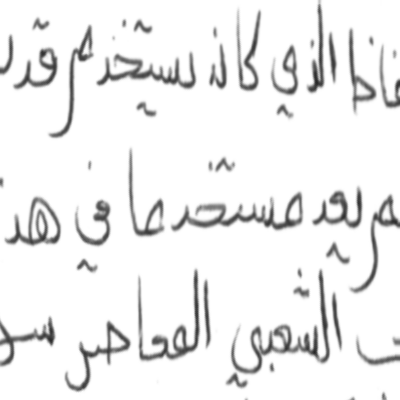 الذي كان يستخدم قد
لم يعد مستخدما في هذ
الشعبي المعاصر